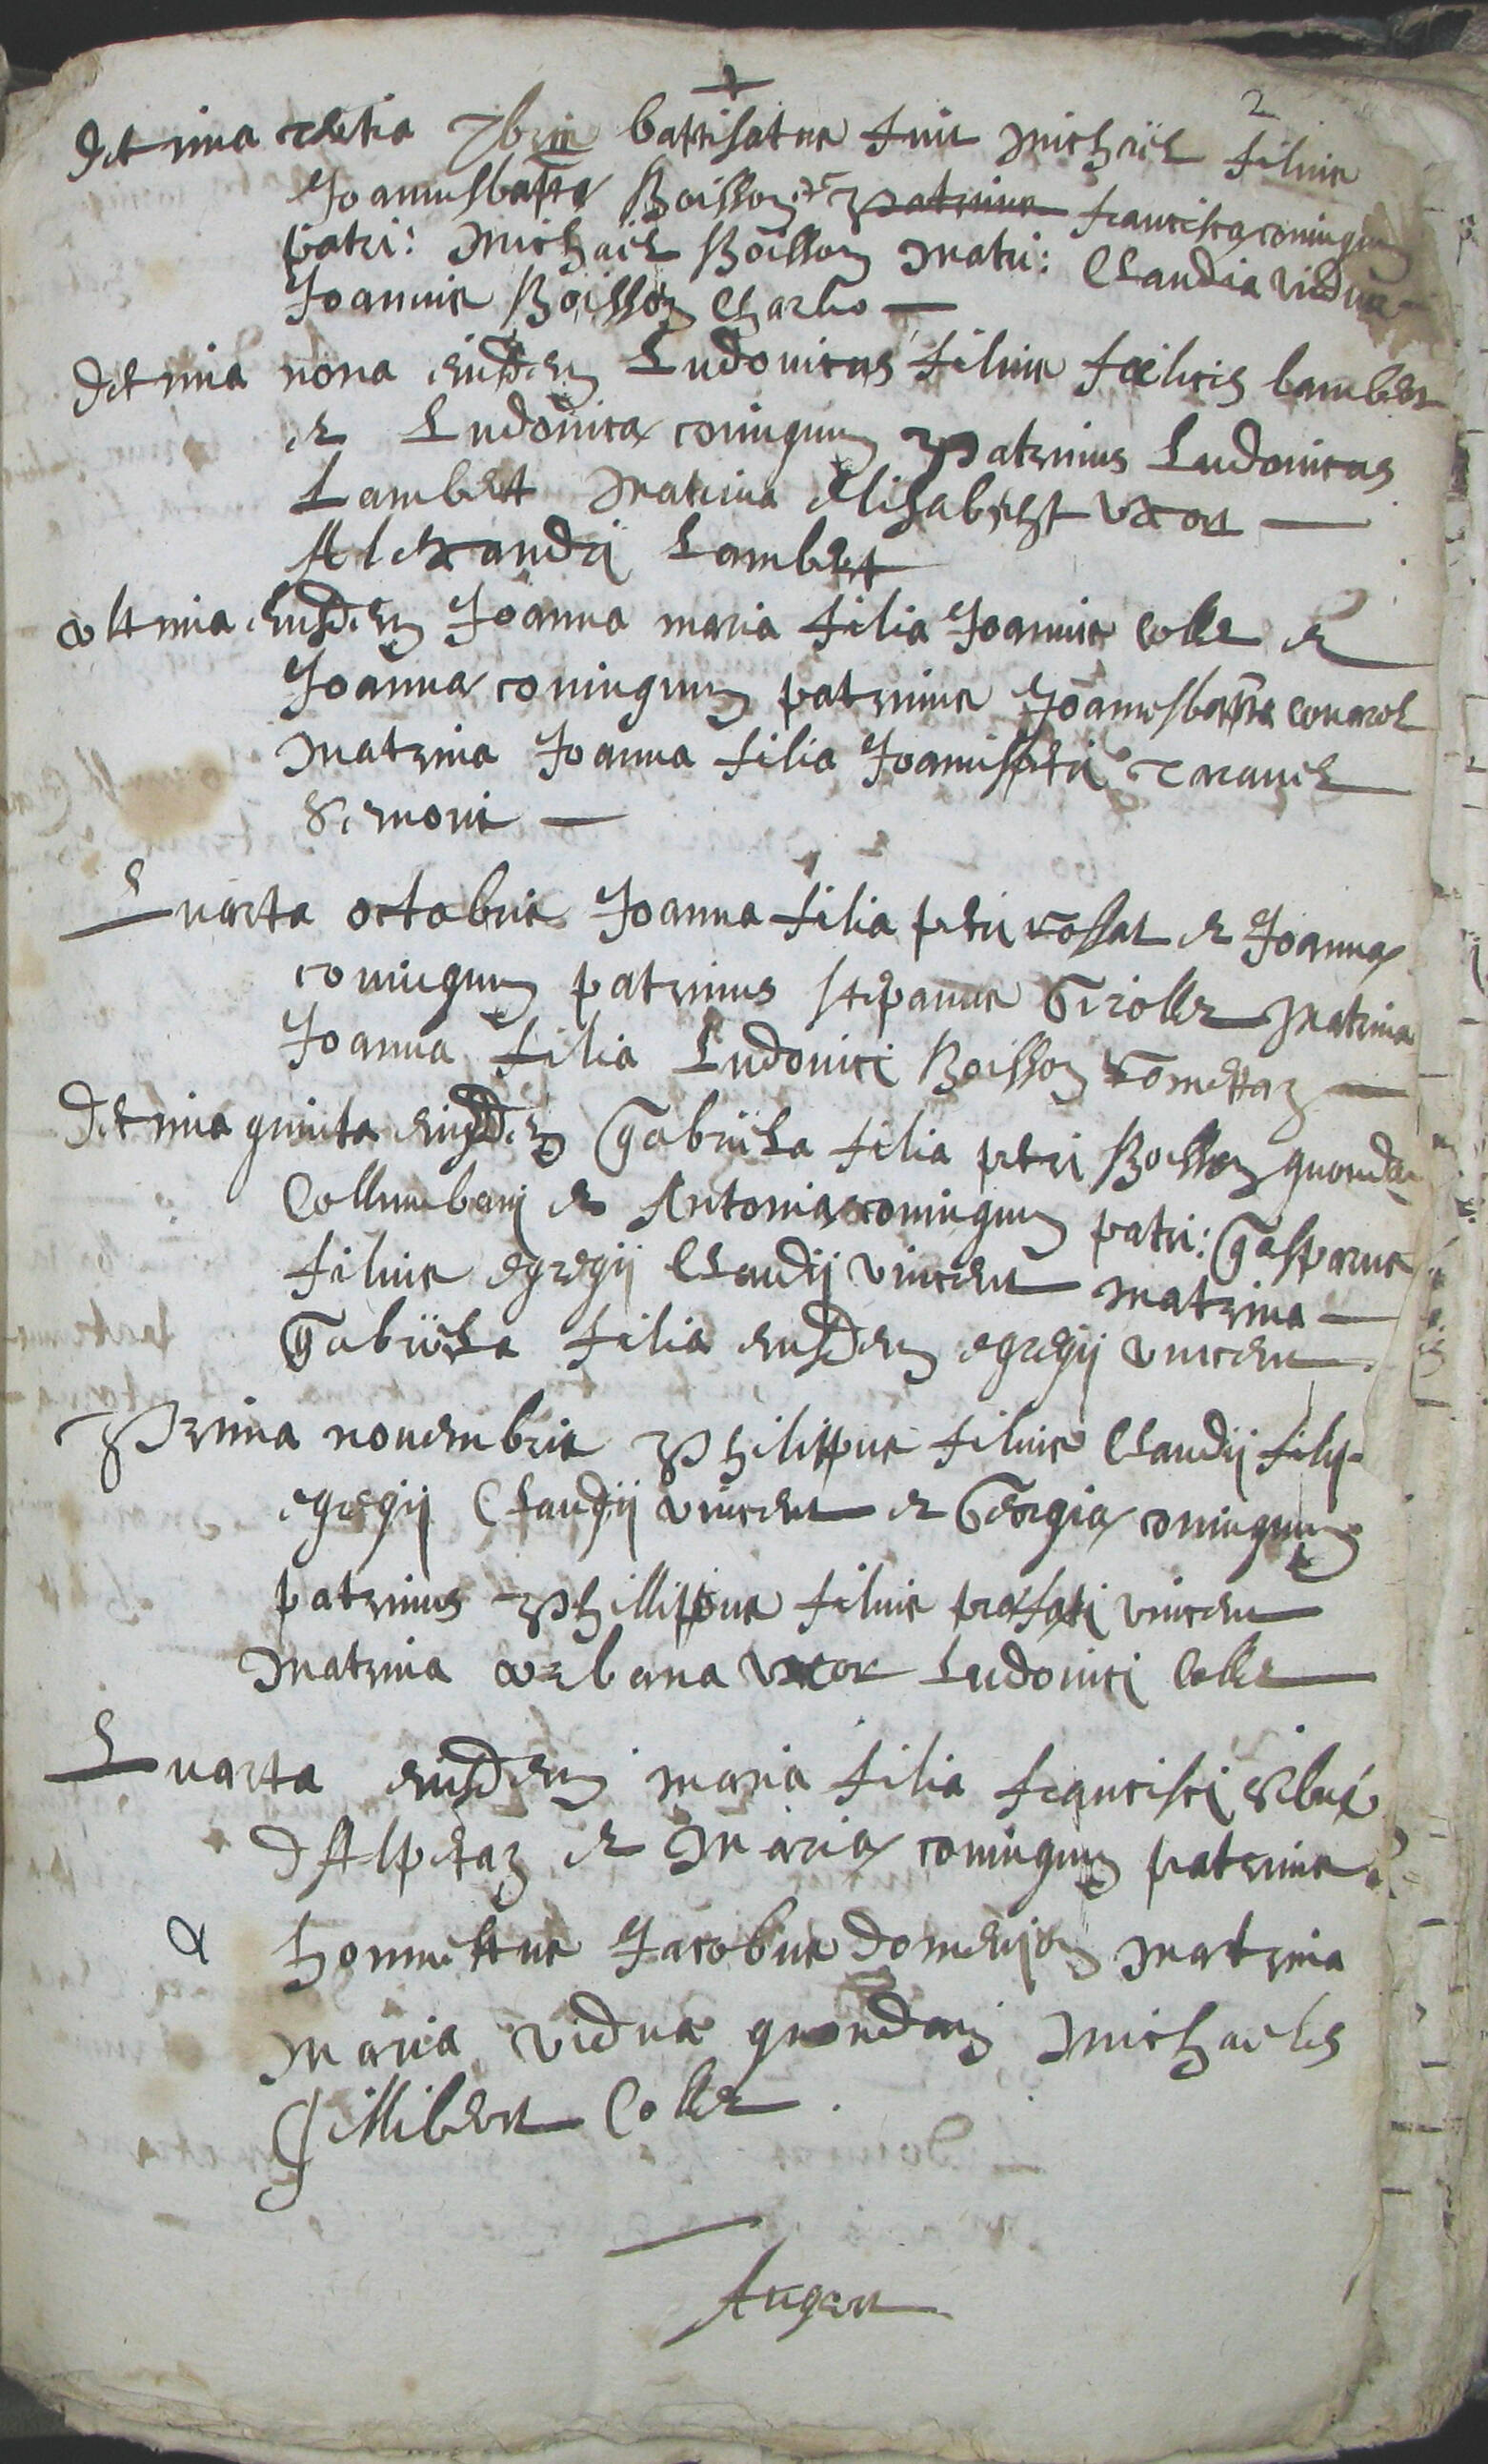 2
Decima tertia 7bris battisatus fuit Michaël filius
Joannisbaptæ Boisson et patrinus franciscæ coniugum
patri: Michaël Boisson Matri: Claudia vidua
Joannis Boisson Charlo
Decima nona eiusdem Ludovicus filius fœlicis Lambert
et Ludovica coniugum Patrinus Ludovicus
Lambert Matrina Elisabeht vxor
Alexandri Lambert
vltima eiusdem Joanna maria filia Joannis Colle et
Joannæ coniugum patrinus Joannesbapta
Matrina Joanna filia Joannispetri
Quarta octobris Joanna filia petri rossat et Joannæ
coniugum patrinus stepanus Girolle Matrina
Joanna filia Ludovici Boisson
Decima quinta eiusdem Gabriela filia petri Boisson quondam
Collumbani et Antoniæ coniugum patri: Gasparus
filius egregij Claudij vincent matrina
Gabriela filia eiusdem egregij vincent
Prima novembris Philippus filius Claudij filij
egregij Claudij vincent et Georgiæ coniugum
patrinus Phillippus filius præfati vincent
Matrina vrbana vxor Ludovici Colle
Quarta eiusdem maria filia francisci
D Alpetaz et Mariæ coniugum patrinus
honnestus Jacobus Matrina
Maria vidua quondam Michaelis
Gillibert Colle